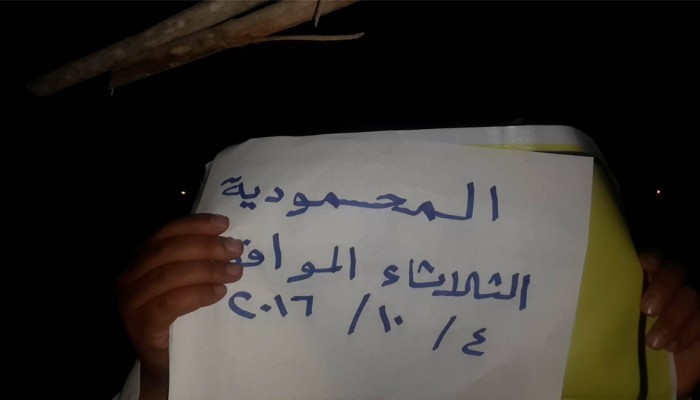 المحمودية
الثلاثاء الموافق
٤ / ١٠ / ٢٠١٦